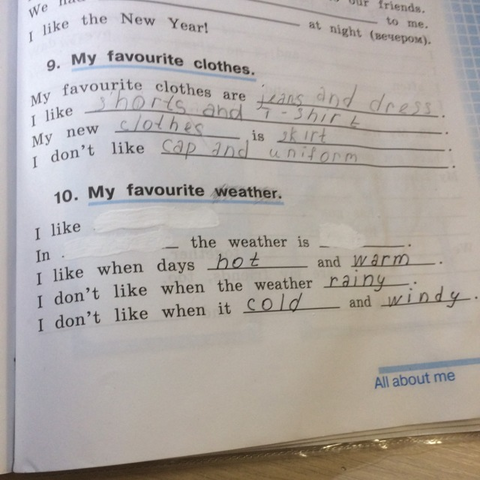 We
our friends.
to me.
I like the New Year!
at night (вечером).
9. My favourite clothes.
My favourite clothes are jeans and dress.
I like shorts and T-shirt.
My new clothes is skirt.
I don't like cap and uniform.
10. My favourite weather.
I like
In the weather is .
I like when days hot and warm.
I don't like when the weather rainy.
I don't like when it cold and windy.
All about me